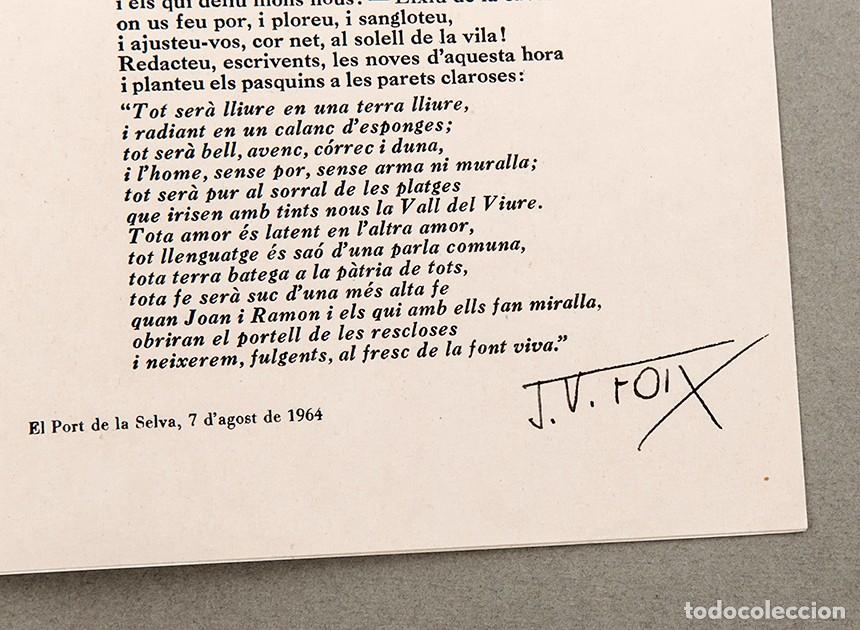 i els qui deliu mons nous! — Eixiu de la
on us feu por, i ploreu, i sangloteu,
i ajusteu-vos, cor net, al solell de la vila!
Redacteu, escrivents, les noves d'aquesta hora
i planteu els pasquins a les parets claroses:
“Tot serà lliure en una terra lliure,
i radiant en un calanc d'esponges;
tot serà bell, avenc, córrec i duna,
i l'home, sense por, sense arma ni muralla;
tot serà pur al sorral de les platges
que irisen amb tints nous la Vall del Viure.
Tota amor és latent en l'altra amor,
tot llenguatge és saó d'una parla comuna,
tota terra batega a la pàtria de tots,
tota fe serà suc d'una més alta fe
quan Joan i Ramon i els qui amb ells fan miralla,
obriran el portell de les rescloses
i neixerem, fulgents, al fresc de la font viva.”
J. V. FOIX
El Port de la Selva, 7 d'agost de 1964
todocoleccion